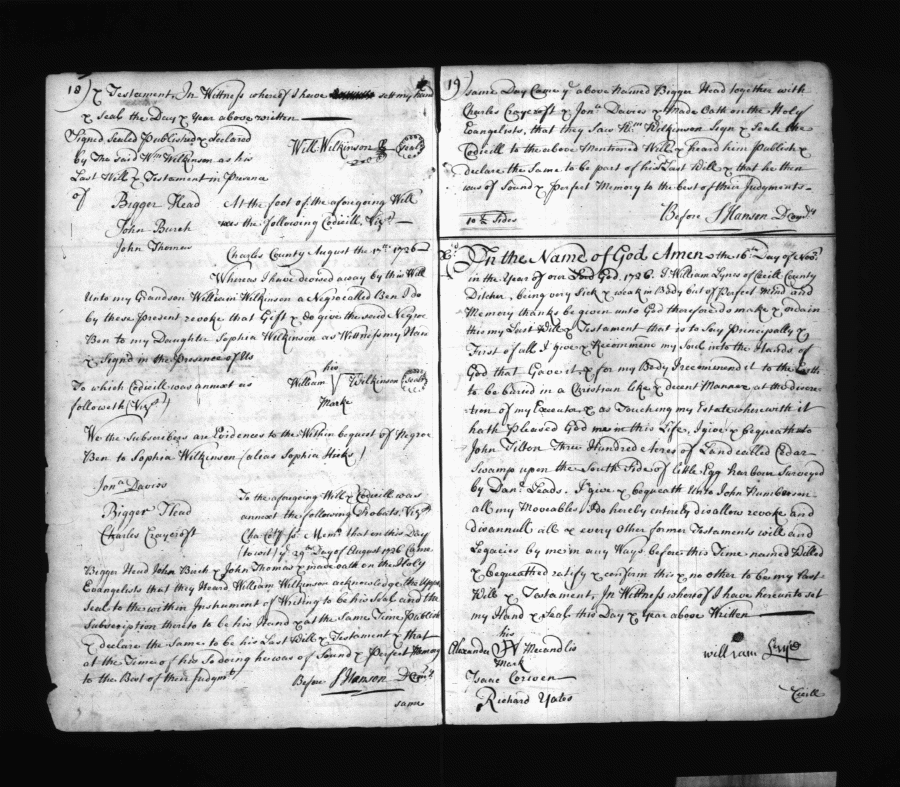 18) & Testament. In Wittness whereof I have set my hand
& Seal the Day & Year above written
Signed Sealed Published & Declared
by The Said Wm Wilkinson as his
Last Will & Testament in Presence
of
Will: Wilkinson (Seal)
Bigger Head
John Burch
John Thomas
At the foot of the aforegoing Will
was the following Codicill. Vizt
Charles County August the 17th 1726
Whereas I have devised away by this Will
Unto my Grandson William Wilkinson a Negro called Ben I do
by these Present revoke that Gift & do give the said Negroe
Ben to my Daughter Sophia Wilkinson as Witness my Han
& Signd in the Presence of Us
his
William V Wilkinson (Seal)
Marke
To which Codicill was annext as
followeth (Vizt)
We the Subscribers are Evidences to the Within bequest of Negroe
Ben to Sophia Wilkinson (alias Sophia Hicks)
Jona Davies
Bigger Head
Charles Craycroft
To the aforegoing Will & Codicill was
annext the following Probate, Vizt
Cha Coty ss. Memo that on this Day
(to wit) ye 29th Day of August 1726 Came
Bigger Head John Buch & John Thomas & made oath on the Holy
Evangelists that they Heard William Wilkinson acknowledge the
Seal to the within Instrument of Writing to be his Seal and the
Subscription thereto to be his Hand & at the Same Time Publish
& declare the Same to be his Last Will & Testament & that
at the Time of his So doing he was of Sound & Perfect Memory
to the Best of their Judgmt
Before S Hanson D Comry
same
19) same Day Came ye above Named Bigger Head together with
Charles Craycroft & Jona Davies & Made Oath on the Holy
Evangelists, that they Saw Wm Wilkinson Sign & Seale the
Codicill to the above Mentioned Will & heard him Publish &
Declare the Same to be part of his Last Will & that he then
was of Sound & Perfect Memory to the best of their Judgments
Before S Hanson D Comry
10½ Sides
In the Name of God Amen the 16th Day of Novr
in the Year of our Lord God 1726. I William Lynes of Cecill County
Ditcher, being very Sick & weak in Body but of Perfect Mind and
Memory thanks be given unto God therefore do make & ordain
this my Last Will & Testament that is to Say Principally &
First of all I give & Recommend my Soul into the Hands of
God that Gave it & for my Body I recommend it to the Earth
to be buried in a Christian like & decent Manner at the discre-
tion of my Executor & as Touching my Estate wherewith it
hath Pleased God me in this Life, I give & bequeath to
John Tilson Three Hundred Acres of Land called Cedar
Swamp upon the South Side of Little Egg harbour Surveyed
by Danl Leads. I give & bequeath Unto John Humberson
all my Moveables I do hereby entirely disallow revoke and
disannull all & every Other former Testaments will and
Legacies by me in any Ways before this Time named Willed
& bequeathed ratify & confirm this & no other to be my Last
Will & Testament. In Wittness whereof I have hereunto set
my Hand & Seal this Day & Year above Written
his
Alexander Mecandlis
Mark
Isaac Corwen
Richard Yates
william
Cecill